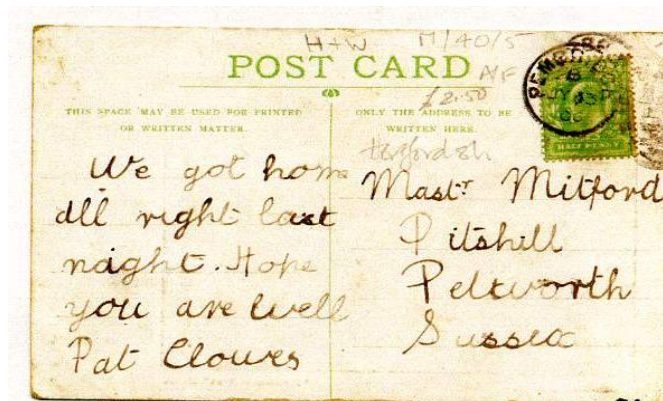 H+W M/40/5
POST CARD
A/F
£2.50
THIS SPACE MAY BE USED FOR PRINTED
OR WRITTEN MATTER.
ONLY THE ADDRESS TO BE
WRITTEN HERE.
HALF PENNY
We got home
all right last
night. Hope
you are well
Pat Clowes
Mastr Mitford
Pitshill
Petworth
Sussex